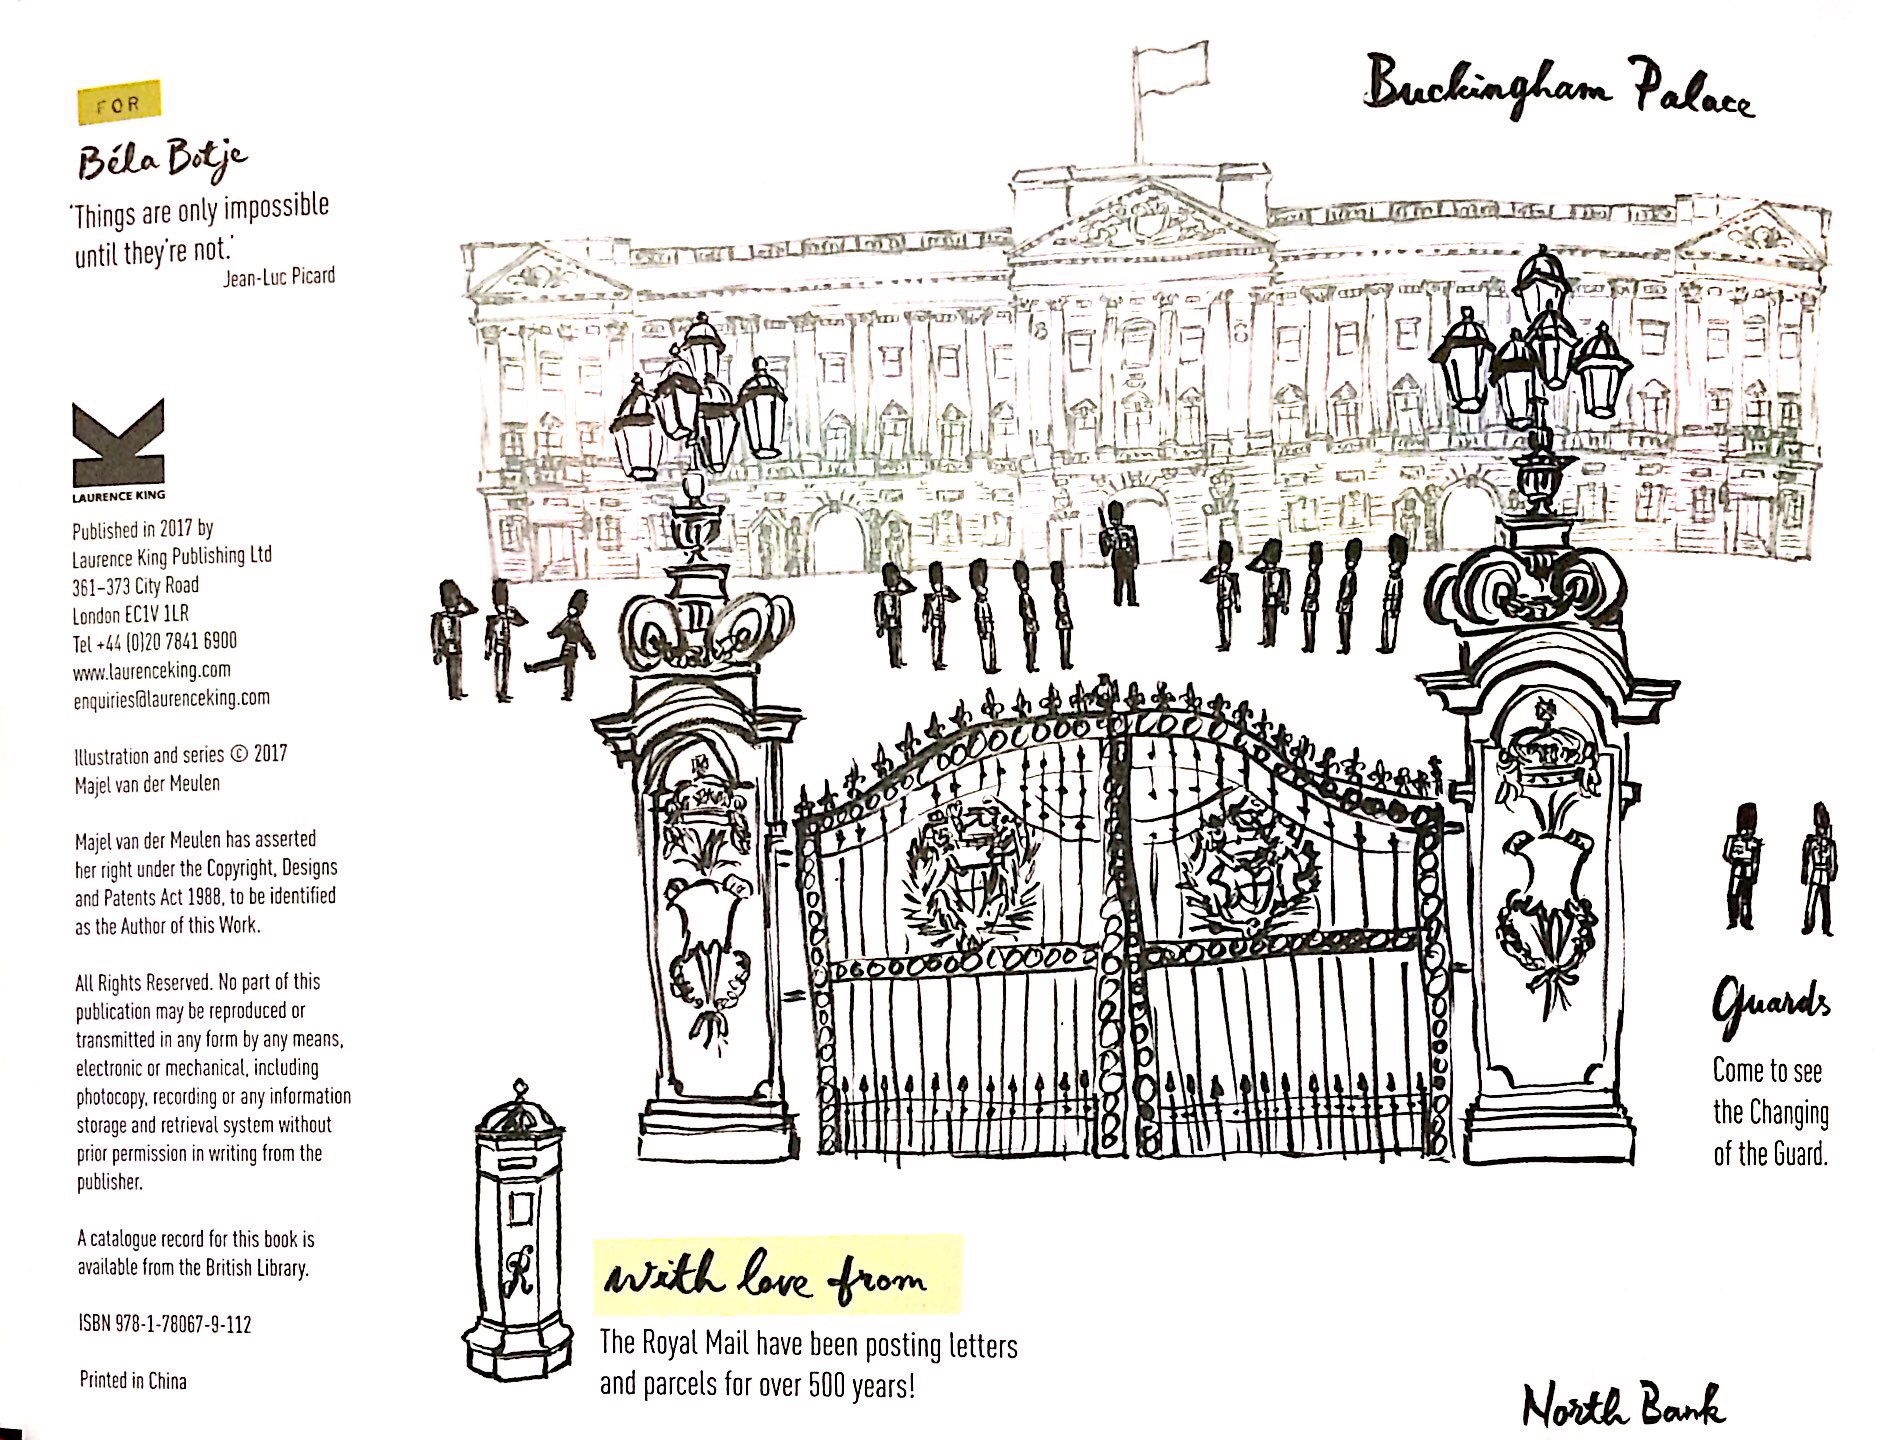 FOR
Béla Botje
'Things are only impossible
until they're not.'
Jean-Luc Picard
K
LAURENCE KING
Published in 2017 by
Laurence King Publishing Ltd
361–373 City Road
London EC1V 1LR
Tel +44 (0)20 7841 6900
www.laurenceking.com
enquiries@laurenceking.com
Illustration and series © 2017
Majel van der Meulen
Majel van der Meulen has asserted
her right under the Copyright, Designs
and Patents Act 1988, to be identified
as the Author of this Work.
All Rights Reserved. No part of this
publication may be reproduced or
transmitted in any form by any means,
electronic or mechanical, including
photocopy, recording or any information
storage and retrieval system without
prior permission in writing from the
publisher.
A catalogue record for this book is
available from the British Library.
ISBN 978-1-78067-9-112
Printed in China
Buckingham Palace
Guards
Come to see
the Changing
of the Guard.
with love from
The Royal Mail have been posting letters
and parcels for over 500 years!
North Bank